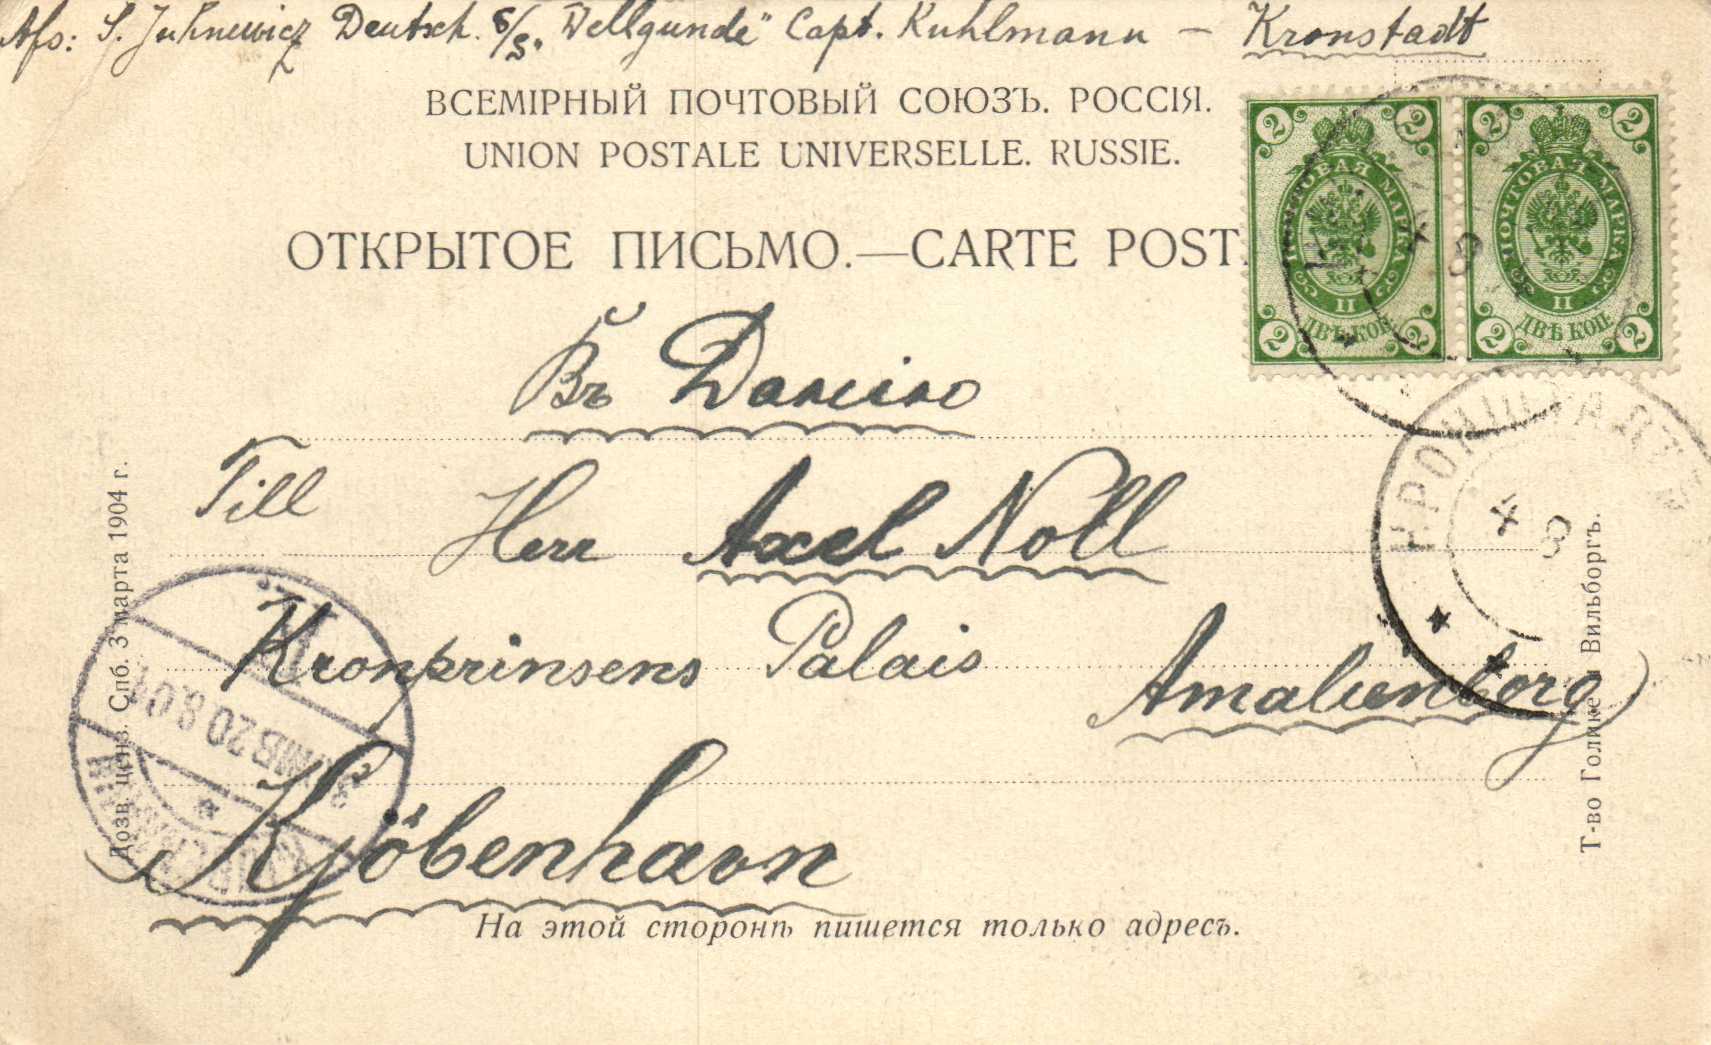 Afs: S. Juhnewicz Deutsch. S/S. „Wellgunde" Capt. Kuhlmann — Kronstadt
ВСЕМІРНЫЙ ПОЧТОВЫЙ СОЮЗЪ. РОССІЯ.
UNION POSTALE UNIVERSELLE. RUSSIE.
ОТКРЫТОЕ ПИСЬМО.—CARTE POST.
2 2 2 2
ПОЧТОВАЯ МАРКА
II
ДВѢ КОП.
2 2 2 2
ПОЧТОВАЯ МАРКА
II
ДВѢ КОП.
КРОНШТАДТЪ
8
Въ Данію
Till Herr Axel Noll
Kronprinsens Palais
Amalienborg
Kjöbenhavn
20.8.04
На этой сторонѣ пишется только адресъ.
Дозв. ценз. Спб. 3 марта 1904 г.
Т-во Голике и Вильборгъ.